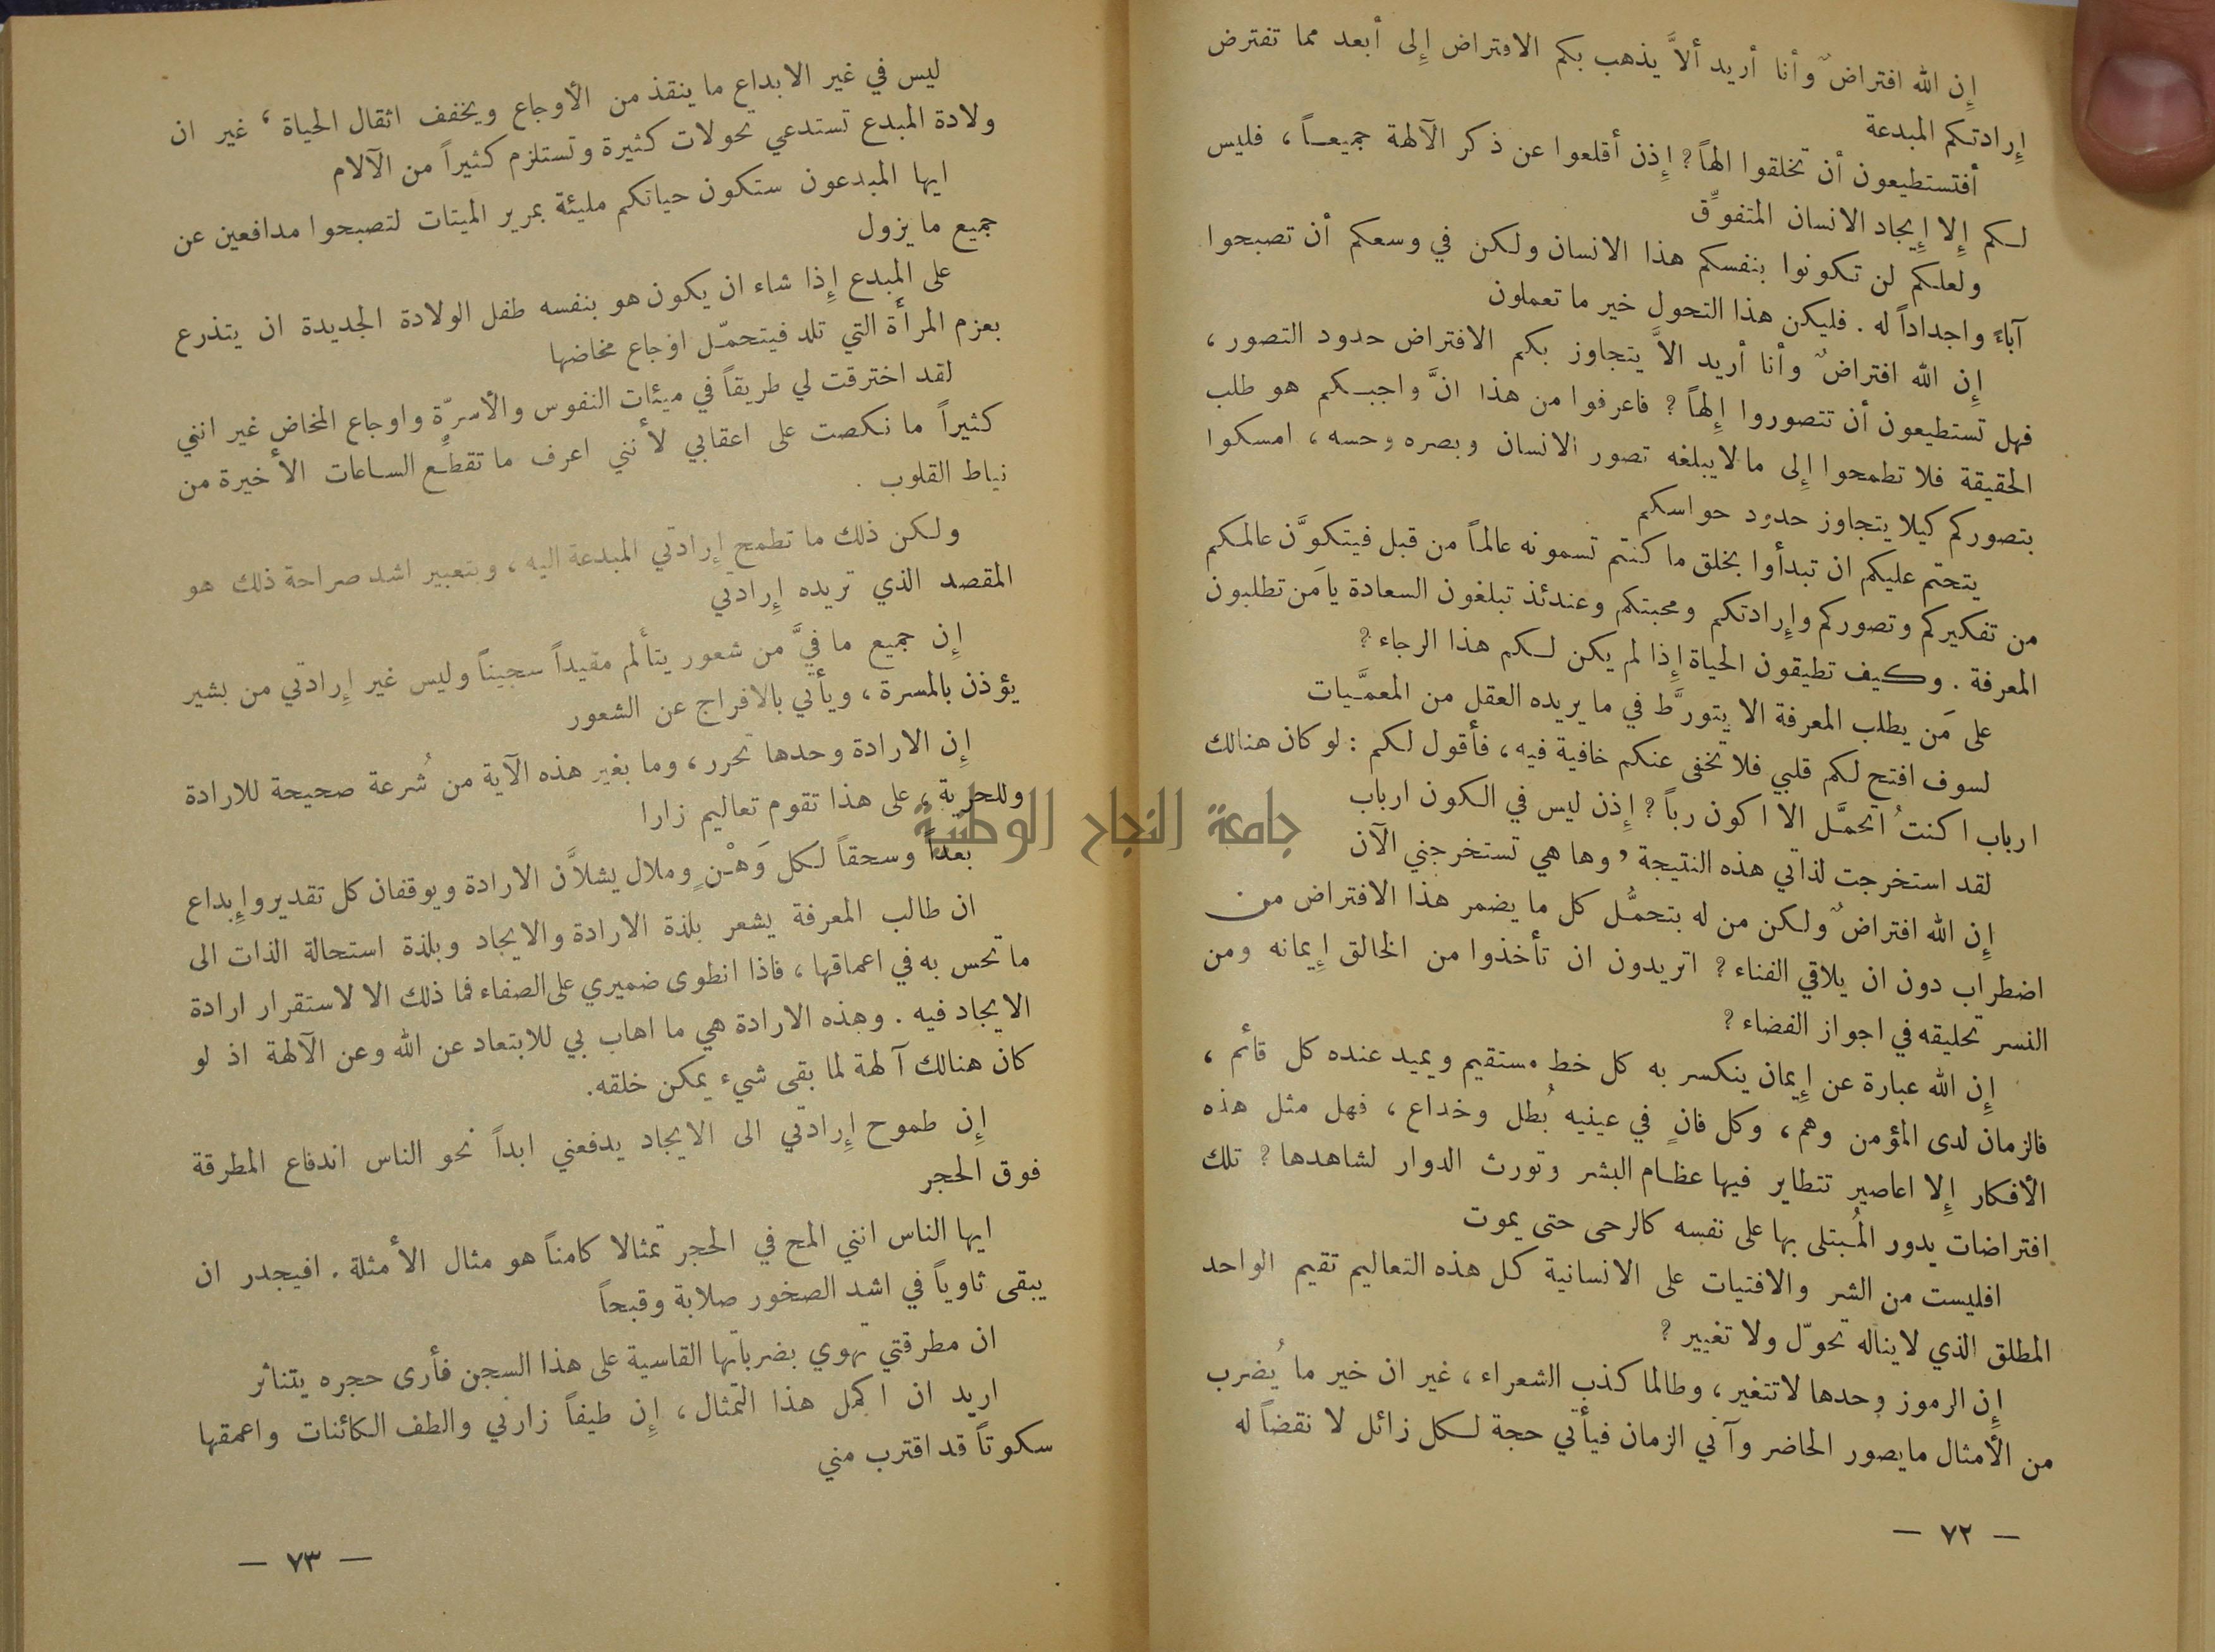 إِن الله افتراضٌ وأنا أريد ألاَّ يذهب بكم الافتراض إِلى أبعد مما تفترض
إِرادتكم المبدعة
أفتستطيعون أن تخلقوا الهاً ؟ إِذن أقلعوا عن ذكر الآلهة جميعـاً ، فليس
لـكم إِلا إِيجاد الانسان المتفوِّق
ولعلكم لن تكونوا بنفسكم هذا الانسان ولكن في وسعكم أن تصبحوا
آباءً واجداداً له . فليكن هذا التحول خير ما تعملون
إِن الله افتراضٌ وأنا أريد الاَّ يتجاوز بكم الافتراض حدود التصور ،
فهل تستطيعون أن تتصوروا إِلهاً ؟ فاعرفوا من هذا انَّ واجبـكم هو طلب
الحقيقة فلا تطمحوا إِلى ما لا يبلغه تصور الانسان وبصره وحسه ، امسكوا
بتصوركم كيلا يتجاوز حدود حواسكم
يتحتم عليكم ان تبدأوا بخلق ما كنتم تسمونه عالماً من قبل فيتكوَّن عالمكم
من تفكيركم وتصوركم وإِرادتكم ومحبتكم وعندئذ تبلغون السعادة يا مَن تطلبون
المعرفة . وكيف تطيقون الحياة إِذا لم يكن لـكم هذا الرجاء ؟
على مَن يطلب المعرفة الا يتورَّط في ما يريده العقل من المعمَّيات
لسوف افتح لكم قلبي فلا تخفى عنكم خافية فيه ، فأقول لكم : لو كان هنالك
ارباب اكنتُ اتحمَّل الا اكون رباً ؟ إِذن ليس في الكون ارباب
لقد استخرجت لذاتي هذه النتيجة ، وها هي تستخرجني الآن
إِن الله افتراضٌ ولكن من له بتحمُّل كل ما يضمر هذا الافتراض من
اضطراب دون ان يلاقي الفناء ؟ اتريدون ان تأخذوا من الخالق إِيمانه ومن
النسر تحليقه في اجواز الفضاء ؟
إِن الله عبارة عن إِيمان ينكسر به كل خط مستقيم ويميد عنده كل قائم ،
فالزمان لدى المؤمن وهم ، وكل فانٍ في عينيه بُطل وخداع ، فهل مثل هذه
الأفكار إِلا اعاصير تتطاير فيها عظام البشر وتورث الدوار لشاهدها ؟ تلك
افتراضات يدور المُبتلى بها على نفسه كالرحى حتى يموت
افليست من الشر والافتيات على الانسانية كل هذه التعاليم تقيم الواحد
المطلق الذي لا يناله تحوّل ولا تغيير ؟
إِن الرموز وحدها لا تتغير ، وطالما كذب الشعراء ، غير ان خير ما يُضرب
من الأمثال ما يصور الحاضر وآتي الزمان فيأتي حجة لـكل زائل لا نقضاً له
— ٧٢ —
ليس في غير الابداع ما ينقذ من الأوجاع ويخفف اثقال الحياة ، غير ان
ولادة المبدع تستدعي تحولات كثيرة وتستلزم كثيراً من الآلام
ايها المبدعون ستكون حياتكم مليئة بمرير الميتات لتصبحوا مدافعين عن
جميع ما يزول
على المبدع إِذا شاء ان يكون هو بنفسه طفل الولادة الجديدة ان يتذرع
بعزم المرأة التي تلد فيتحمّل اوجاع مخاضها
لقد اخترقت لي طريقاً في ميئات النفوس والأسرّة واوجاع المخاض غير انني
كثيراً ما نكصت على اعقابي لأنني اعرف ما تقطّع الساعات الأخيرة من
نياط القلوب .
ولـكن ذلك ما تطمح إِرادتي المبدعة اليه ، وبتعبير اشد صراحة ذلك هو
المقصد الذي تريده إِرادتي
إِن جميع ما فيَّ من شعور يتألم مقيداً سجيناً وليس غير إِرادتي من بشير
يؤذن بالمسرة ، ويأتي بالافراج عن الشعور
إِن الارادة وحدها تحرر ، وما بغير هذه الآية من شُرعة صحيحة للارادة
وللحرية ، على هذا تقوم تعاليم زارا
جامعة النجاح الوطنية
بعداً وسحقاً لـكل وَهْـنٍ وملال يشلاَّن الارادة ويوقفان كل تقدير وإِبداع
ان طالب المعرفة يشعر بلذة الارادة والايجاد وبلذة استحالة الذات الى
ما تحس به في اعماقها ، فاذا انطوى ضميري على الصفاء فما ذلك الا لاستقرار ارادة
الايجاد فيه . وهذه الارادة هي ما اهاب بي للابتعاد عن الله وعن الآلهة اذ لو
كان هنالك آلهة لما بقى شيء يمكن خلقه .
إِن طموح إِرادتي الى الايجاد يدفعني ابداً نحو الناس اندفاع المطرقة
فوق الحجر
ايها الناس انني المح في الحجر تمثالا كامناً هو مثال الأمثلة . افيجدر ان
يبقى ثاوياً في اشد الصخور صلابة وقبحاً
ان مطرقتي تهوي بضرباتها القاسية على هذا السجن فأرى حجره يتناثر
اريد ان اكمل هذا التمثال ، إِن طيفاً زارني والطف الكائنات واعمقها
سكوتاً قد اقترب مني
— ٧٣ —